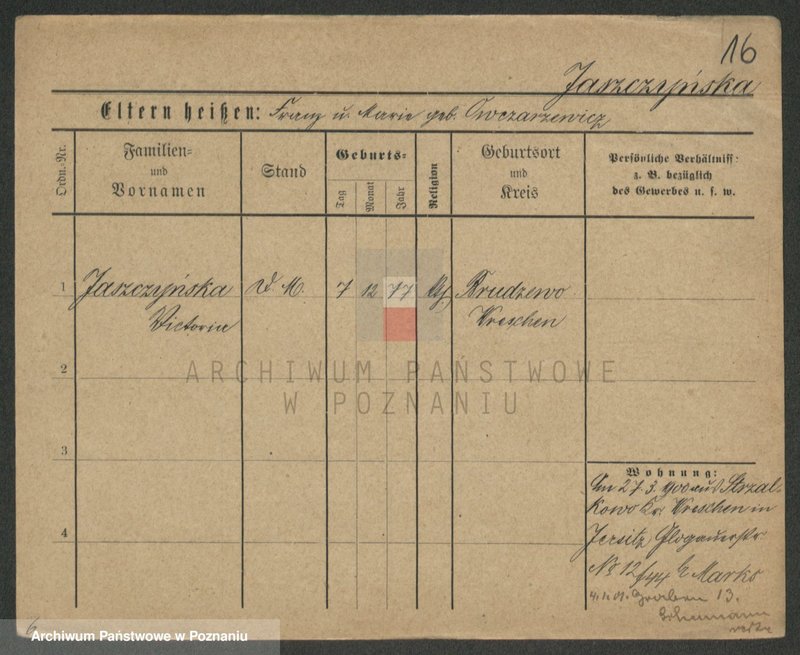 16
Jaszczyńska
Eltern heißen: Franz u. Marie geb. Owczarzewicz
Ordn.-Nr.
Familien-
und
Vornamen
Stand
Geburts-
Tag
Monat
Jahr
Religion
Geburtsort
und
Kreis
Persönliche Verhältniss:
z. B. bezüglich
des Gewerbes u. s. w.
1 Jaszczyńska D. M. 7 12 77 Brudzewo
Victoria Wreschen
2
ARCHIWUM PAŃSTWOWE
W POZNANIU
3
4
Wohnung:
Am 27.3.1900 aus Strzal-
kowo Kr. Wreschen in
Jersitz Glogauerstr
No 12 Marko
Graben 13.
Schumann
Archiwum Państwowe w Poznaniu